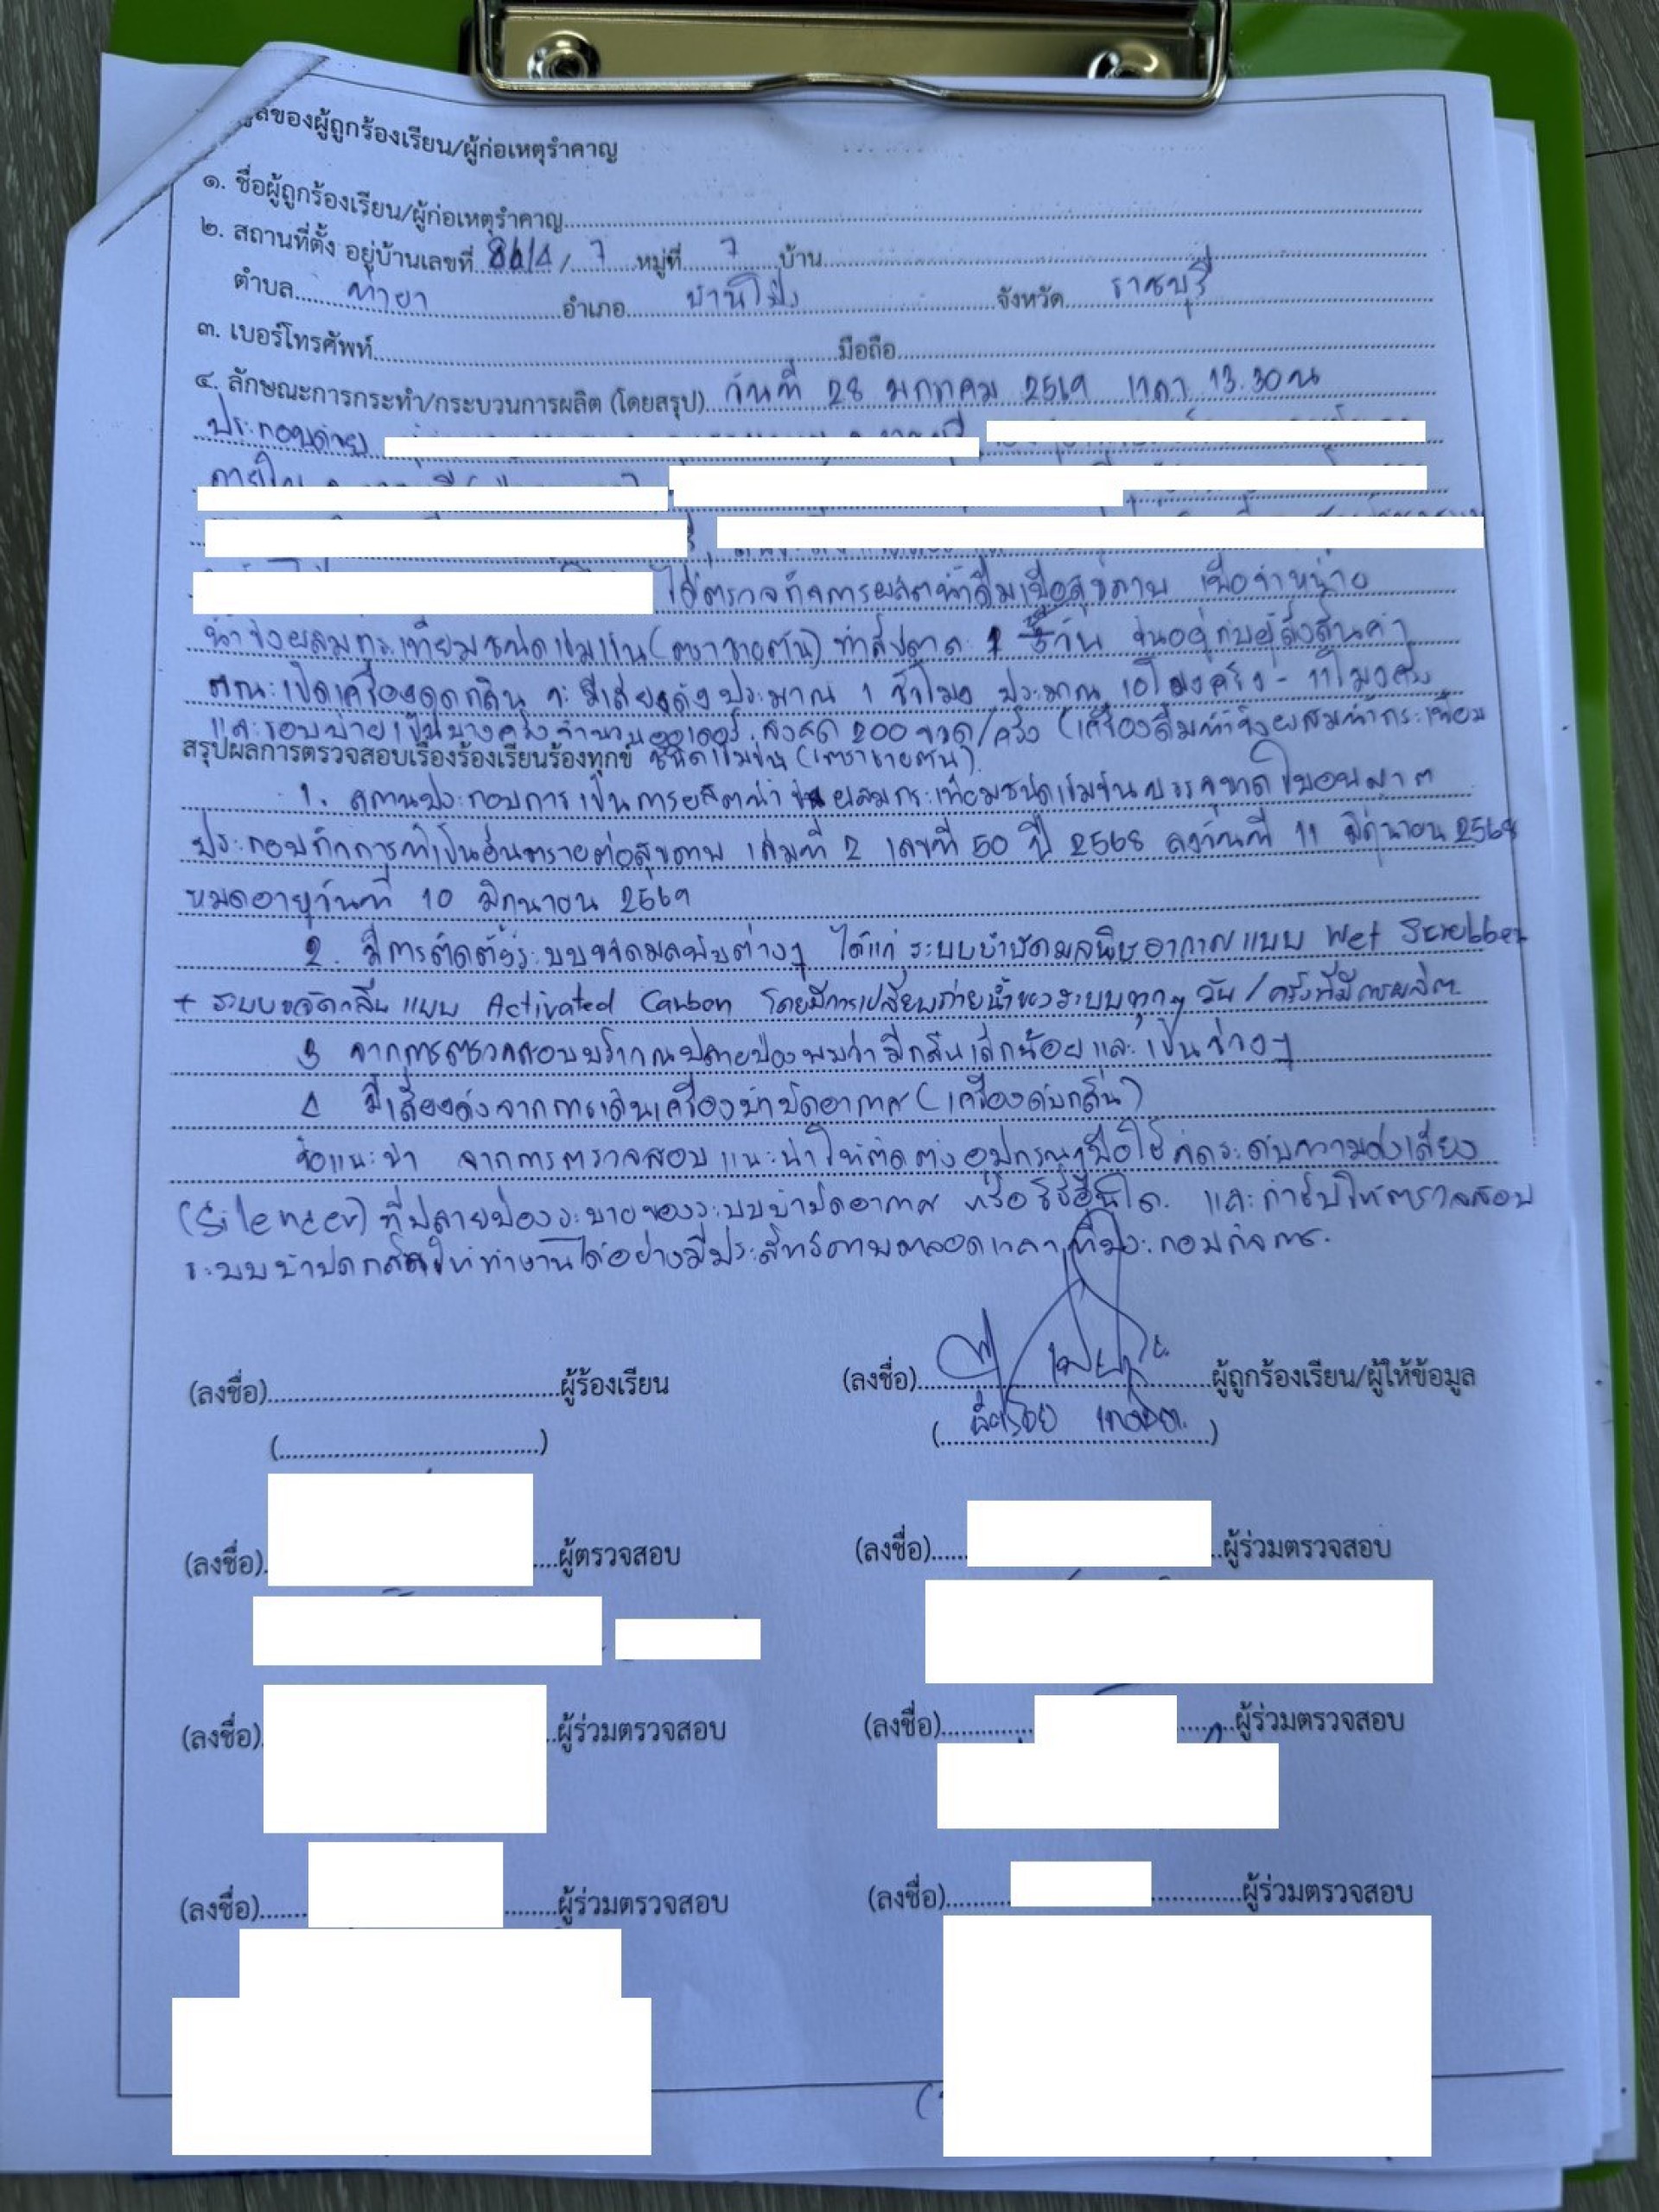 ของผู้ถูกร้องเรียน/ผู้ก่อเหตุรำคาญ
๑. ชื่อผู้ถูกร้องเรียน/ผู้ก่อเหตุรำคาญ
๒. สถานที่ตั้ง อยู่บ้านเลขที่ 86/4 / 7 หมู่ที่ 7 บ้าน
ตำบล ท่าผา อำเภอ บ้านโป่ง จังหวัด ราชบุรี
๓. เบอร์โทรศัพท์ มือถือ
๔. ลักษณะการกระทำ/กระบวนการผลิต (โดยสรุป) วันที่ 28 มกราคม 2569 เวลา 13.30 น
ประกอบด้วย
ภายใน
ได้ตรวจกิจการผลิตน้ำดื่มเพื่อสุขภาพ เพื่อจำหน่าย
น้ำขิงผสมกระเทียมชนิดเข้มข้น (ตราชายตัน) ทำสัปดาห์ วัน ขึ้นอยู่กับผู้สั่งสินค้า
ขณะเปิดเครื่องดูดกลิ่น จะมีเสียงดังประมาณ 1 ชั่วโมง ประมาณ 10โมงครึ่ง - 11โมงครึ่ง
และรอบบ่ายเป็นบางครั้ง จำนวนออเดอร์ สูงสุด 200 ขวด/ครั้ง (เครื่องดื่มน้ำขิงผสมน้ำกระเทียม
สรุปผลการตรวจสอบเรื่องร้องเรียนร้องทุกข์ ชนิดเข้มข้น (ตราชายตัน)
1. สถานประกอบการเป็นการผลิตน้ำขิงผสมกระเทียมชนิดเข้มข้นบรรจุขวด ใบอนุญาต
ประกอบกิจการที่เป็นอันตรายต่อสุขภาพ เล่มที่ 2 เลขที่ 50 ปี 2568 ลงวันที่ 11 มิถุนายน 2568
หมดอายุวันที่ 10 มิถุนายน 2569
2. มีการติดตั้งระบบขจัดมลพิษต่างๆ ได้แก่ ระบบบำบัดมลพิษอากาศแบบ Wet Scrubber
+ ระบบขจัดกลิ่น แบบ Activated Carbon โดยมีการเปลี่ยนถ่ายน้ำของระบบทุกๆ วัน/ครั้งที่มีการผลิต
3 จากการตรวจสอบบริเวณปลายปล่องพบว่ามีกลิ่นเล็กน้อยและเป็นช่วงๆ
4 มีเสียงดังจากการเดินเครื่องบำบัดอากาศ (เครื่องดับกลิ่น)
ข้อแนะนำ จากการตรวจสอบ แนะนำให้ติดตั้งอุปกรณ์เพื่อใช้ลดระดับความดังเสียง
(Silencer) ที่ปลายปล่องระบายของระบบบำบัดอากาศ หรือวิธีอื่นใด และกำชับให้ตรวจสอบ
ระบบบำบัดกลิ่นให้ทำงานได้อย่างมีประสิทธิภาพตลอดเวลาที่ประกอบกิจการ.
(ลงชื่อ) ผู้ร้องเรียน (ลงชื่อ) ผู้ถูกร้องเรียน/ผู้ให้ข้อมูล
(ลงชื่อ) ผู้ตรวจสอบ (ลงชื่อ) ผู้ร่วมตรวจสอบ
(ลงชื่อ) ผู้ร่วมตรวจสอบ (ลงชื่อ) ผู้ร่วมตรวจสอบ
(ลงชื่อ) ผู้ร่วมตรวจสอบ (ลงชื่อ) ผู้ร่วมตรวจสอบ